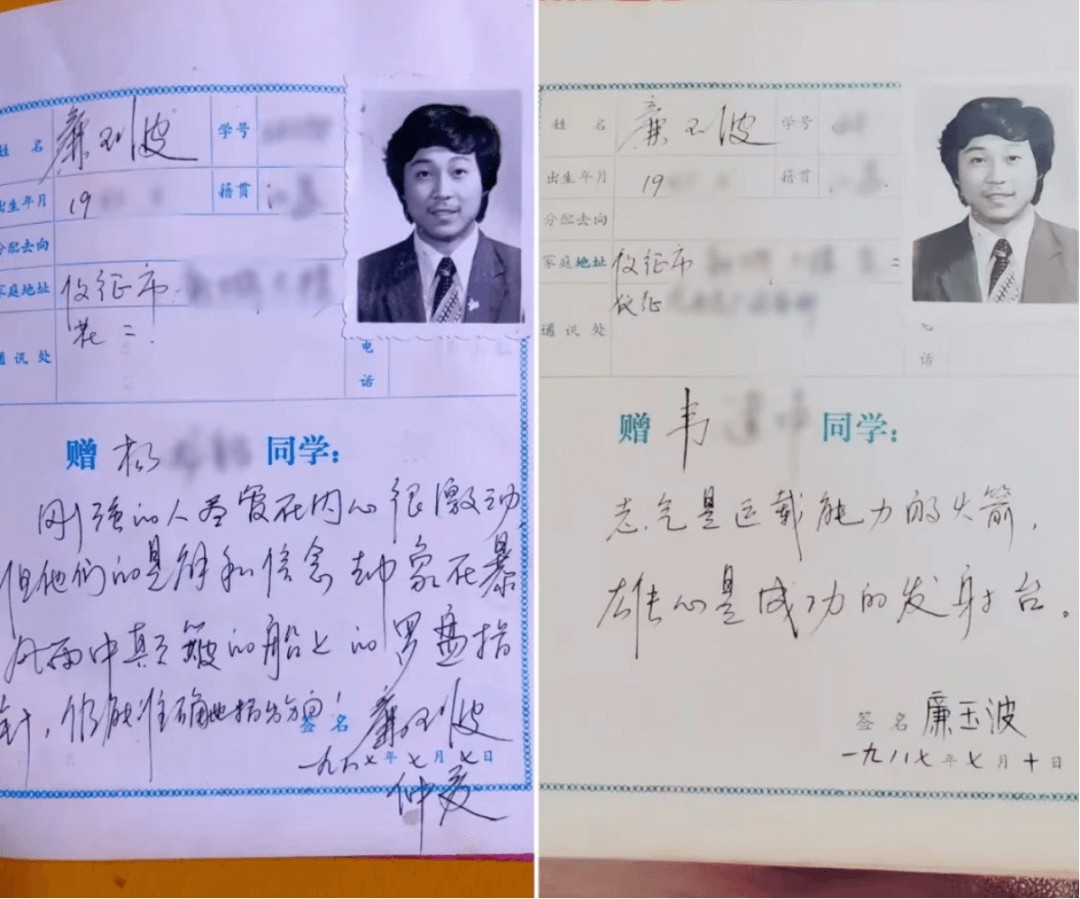 姓 名 廉玉波 学号
出生年月 19 籍贯 江
分配去向
家庭地址 仪征市
花二
通讯处
电
话
赠 杨 同学：
刚强的人尽管在内心很激动，
但他们的见解和信念却象在暴
风雨中颠簸的船上的罗盘指
针，仍能准确地指出方向！
签名 廉玉波
一九八七年七月七日
仲夏
姓 名 廉玉波 学号
出生年月 19 籍贯
分配去向
家庭地址 仪征市
仪征
通讯处
电
话
赠 韦 同学：
志气是运载能力的火箭，
雄心是成功的发射台。
签名 廉玉波
一九八七年七月十日